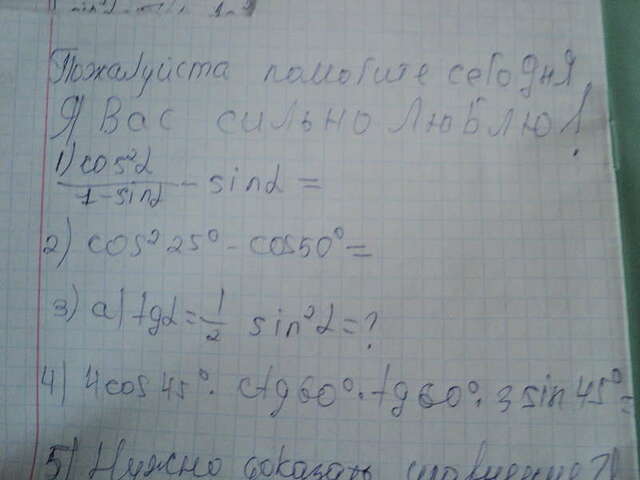 Пожалуйста помогите сегодня
Я Вас сильно люблю!
1) cos²α / 1-sinα - sinα =
2) cos² 25° - cos50° =
3) a) tgα = 1/2 sin²α = ?
4) 4cos 45° · ctg60° · tg60° · 3sin45° =
5) Нужно доказать